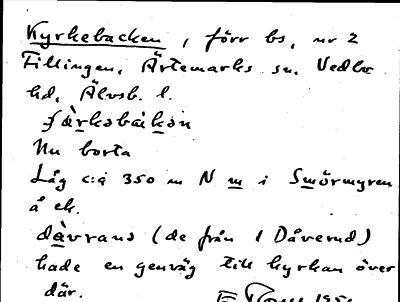 Kyrkebacken, förr bs, nr 2
Fillingen, Ärtemarks sn, Vedbo
hd, Älvsb. l.
Nu borta
Låg c:a 350 m N m i Smörmyren
å ek.
dàvrans (de från l Dåverud)
hade en genväg till kyrkan över
där.